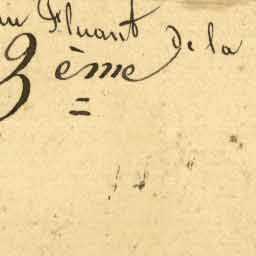 Fluant De la
3ème